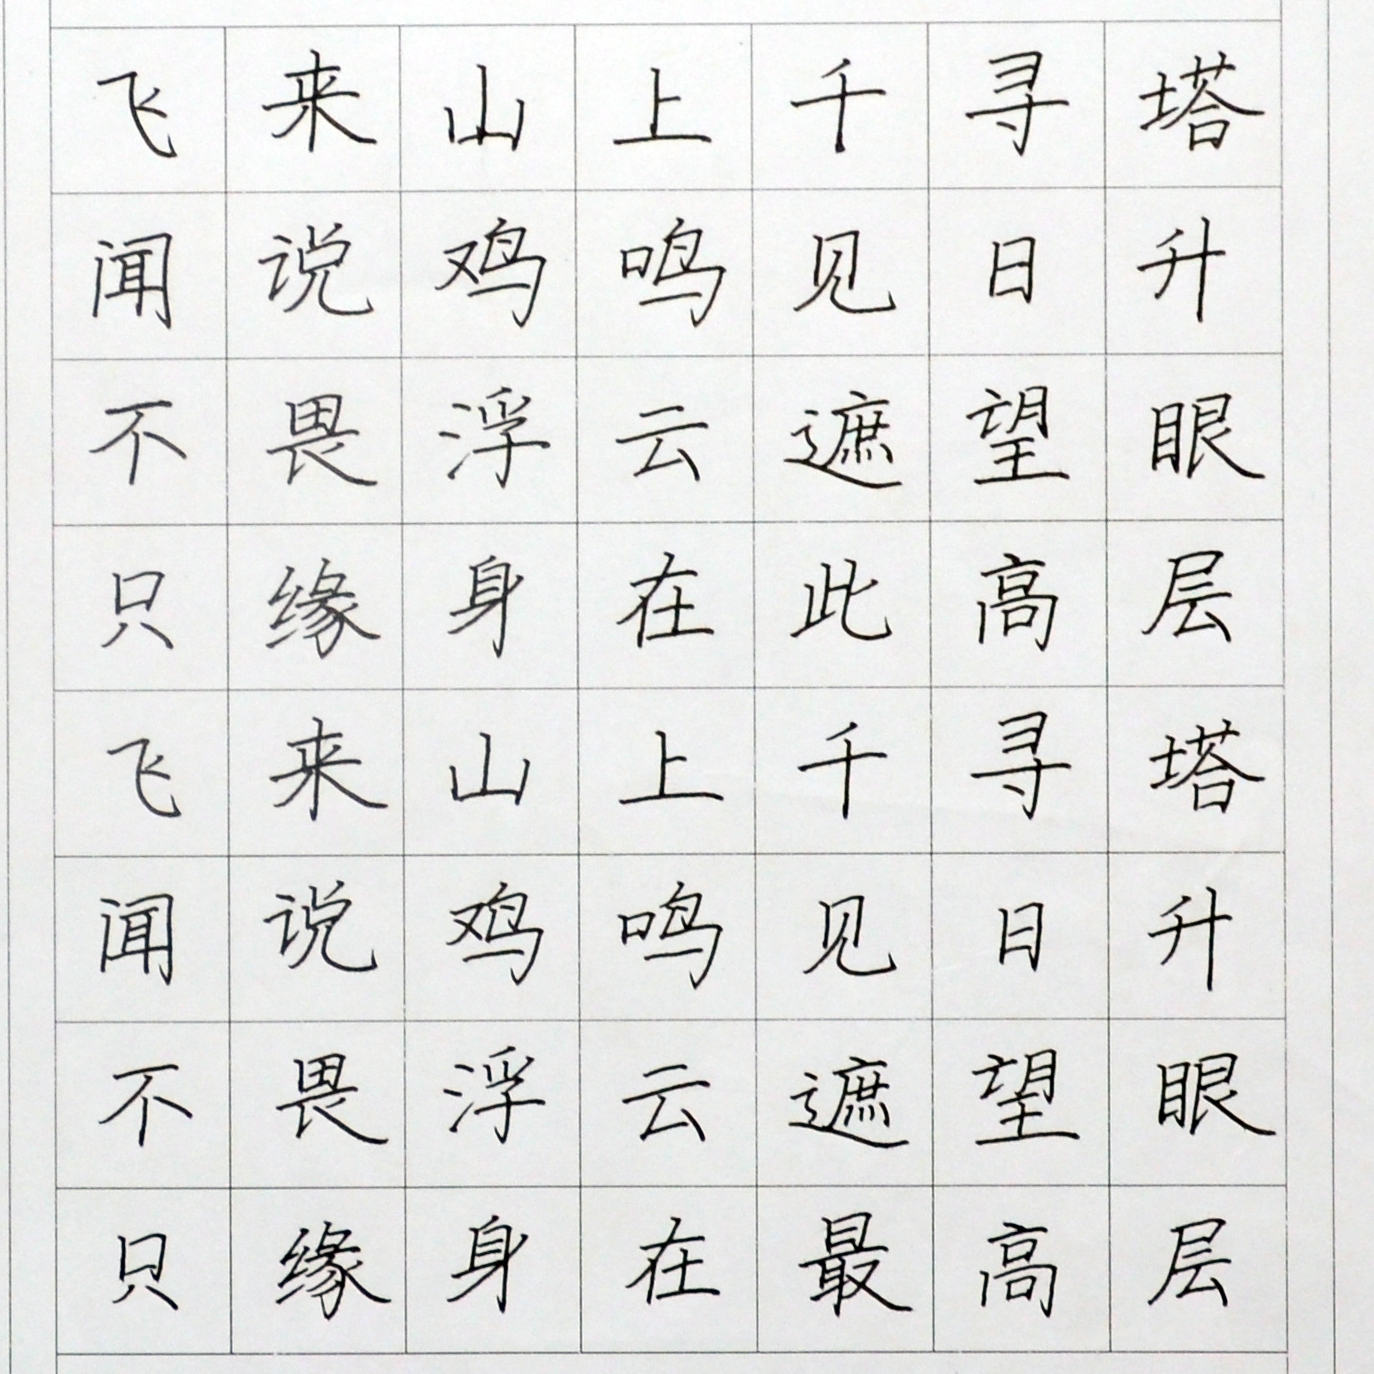 飞来山上千寻塔
闻说鸡鸣见日升
不畏浮云遮望眼
只缘身在此高层
飞来山上千寻塔
闻说鸡鸣见日升
不畏浮云遮望眼
只缘身在最高层